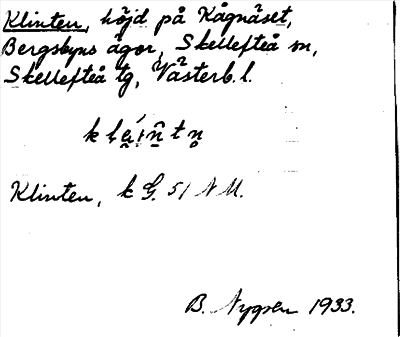 Klinten, höjd på Kågnäset,
Bergsbyns ägor, Skellefteå sn,
Skellefteå tg, Västerb. l.
Klinten, k G. 51 N M.
B. Nygren 1933.